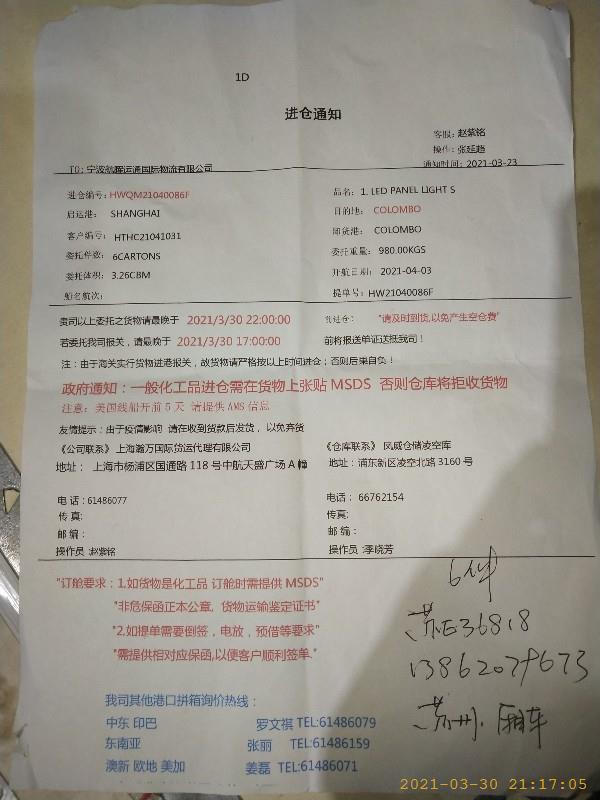 1D
进仓通知
客服：赵紫铭
操作：张廷越
TO：宁波航晖运通国际物流有限公司 通知时间：2021-03-23
进仓编号：HWQM21040086F 品名：1. LED PANEL LIGHT S
启运港： SHANGHAI 目的地： COLOMBO
客户编号： HTHC21041031 卸货港： COLOMBO
委托件数： 6CARTONS 委托重量： 980.00KGS
委托体积： 3.26CBM 开航日期： 2021-04-03
船名航次： 提单号：HW21040086F
贵司以上委托之货物请最晚于 2021/3/30 22:00:00 到进仓： "请及时到货,以免产生空仓费"
若委托我司报关，请最晚于 2021/3/30 17:00:00 前将报送单证送抵我司！
注：由于海关实行货物进港报关，故货物请严格按以上时间进仓；否则后果自负！
政府通知：一般化工品进仓需在货物上张贴 MSDS 否则仓库将拒收货物
注意：美国线船开前 5 天 请提供 AMS 信息
友情提示：由于疫情影响 请在收到货款后发货， 以免弃货
《公司联系》上海瀚万国际货运代理有限公司 《仓库联系》 凤威仓储凌空库
地址： 上海市杨浦区国通路 118 号中航天盛广场 A 幢 地址：浦东新区凌空北路 3160 号
电话：61486077 电话： 66762154
传真: 传真:
邮编： 邮编：
操作员 :赵紫铭 操作员 :季晓芳
"订舱要求：1.如货物是化工品 订舱时需提供 MSDS"
"非危保函正本公章，货物运输鉴定证书"
"2.如提单需要倒签，电放，预借等要求"
"需提供相对应保函,以便客户顺利签单."
6件
苏E36818
13862079673
苏州. 厢车
我司其他港口拼箱询价热线：
中东 印巴 罗文祺 TEL:61486079
东南亚 张丽 TEL:61486159
澳新 欧地 美加 姜磊 TEL:61486071
2021-03-30 21:17:05